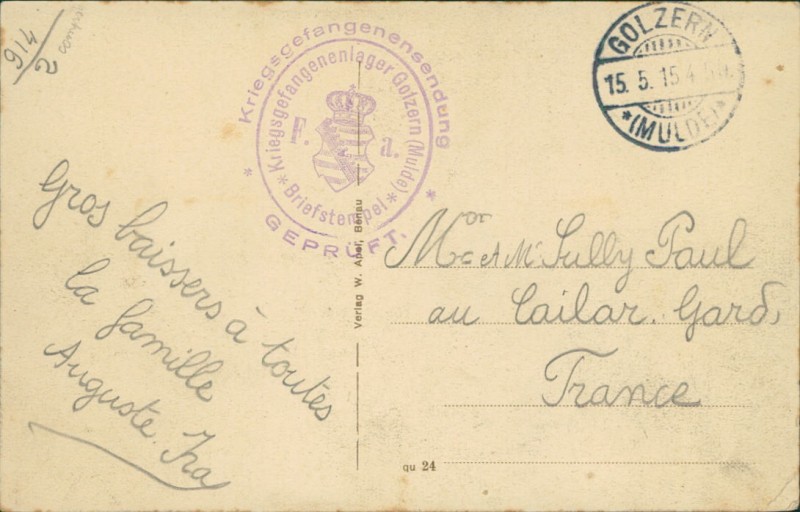 914/2
Kriegsgefangenensendung
* Kriegsgefangenenlager Golzern (Mulde) *
F. a.
Briefstempel
* GEPRÜFT *
GOLZERN
15. 5. 15 4
* (MULDE) *
Gros baissers à toutes
la famille
Auguste
Verlag W. Apel, Benau
Mor et Me Sully Paul
au Cailar. Gard,
France
qu 24